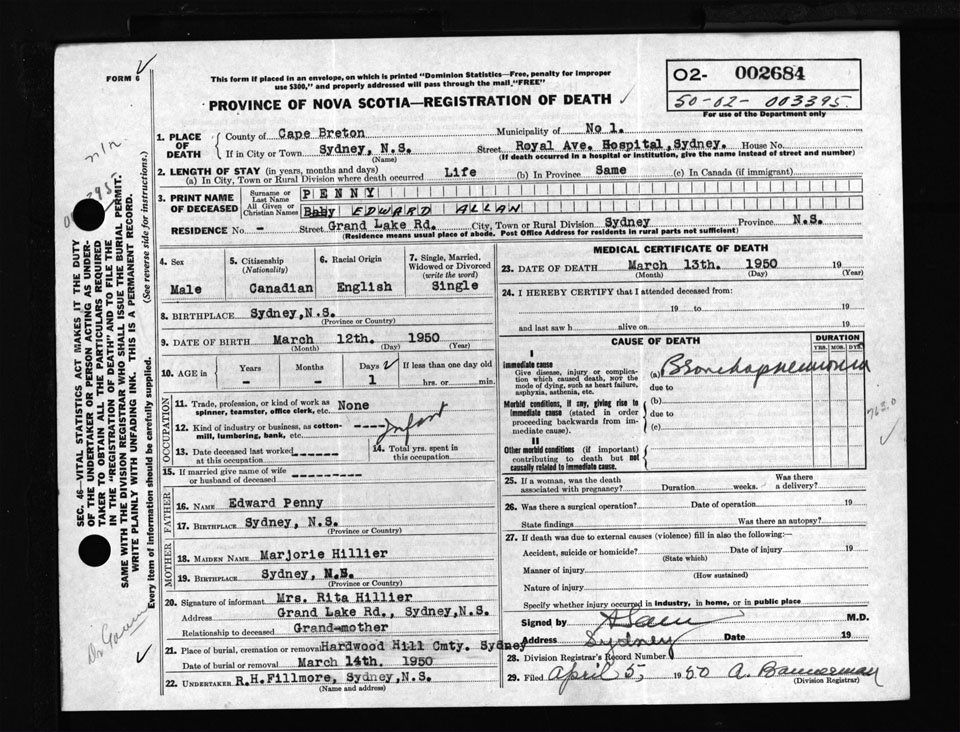 FORM 6
This form if placed in an envelope, on which is printed "Dominion Statistics—Free, penalty for improper
use $300," and properly addressed will pass through the mail "FREE"
PROVINCE OF NOVA SCOTIA—REGISTRATION OF DEATH
O2- 002684
50-02-003395
For use of the Department only
1. PLACE OF DEATH
County of Cape Breton Municipality of No 1.
If in City or Town Sydney, N.S. Street Royal Ave. Hospital, Sydney. House No.
(Name) (If death occurred in a hospital or institution, give the name instead of street and number)
2. LENGTH OF STAY (in years, months and days)
(a) In City, Town or Rural Division where death occurred Life (b) In Province Same (c) In Canada (if immigrant)
3. PRINT NAME OF DECEASED
Surname or Last Name PENNY
All Given or Christian Names Baby EDWARD ALLAN
RESIDENCE No. - Street Grand Lake Rd. City, Town or Rural Division Sydney Province N.S.
(Residence means usual place of abode. Post Office Address for residents in rural parts not sufficient)
4. Sex
Male
5. Citizenship
(Nationality)
Canadian
6. Racial Origin
English
7. Single, Married, Widowed or Divorced
(write the word)
Single
8. BIRTHPLACE Sydney, N.S.
(Province or Country)
9. DATE OF BIRTH March 12th. 1950
(Month) (Day) (Year)
10. AGE in Years Months Days If less than one day old
- - 1 hrs. or min.
OCCUPATION
11. Trade, profession, or kind of work as
spinner, teamster, office clerk, etc. None
12. Kind of industry or business, as cotton-
mill, lumbering, bank, etc. -----
Infant
13. Date deceased last worked
at this occupation -------
14. Total yrs. spent in
this occupation
15. If married give name of wife
or husband of deceased -------
FATHER
16. NAME Edward Penny
17. BIRTHPLACE Sydney, N.S.
(Province or Country)
MOTHER
18. MAIDEN NAME Marjorie Hillier
19. BIRTHPLACE Sydney, N.S.
(Province or Country)
20. Signature of informant Mrs. Rita Hillier
Address Grand Lake Rd., Sydney,N.S.
Relationship to deceased Grand-mother
21. Place of burial, cremation or removal Hardwood Hill Cmty. Sydney
Date of burial or removal March 14th. 1950
22. UNDERTAKER R.H.Fillmore, Sydney,N.S.
(Name and address)
MEDICAL CERTIFICATE OF DEATH
23. DATE OF DEATH March 13th. 1950 19
(Month) (Day) (Year)
24. I HEREBY CERTIFY that I attended deceased from:
19 to 19
and last saw h alive on 19
CAUSE OF DEATH
DURATION
YRS. MOS. DYS.
I
Immediate cause
Give disease, injury or complica-
tion which caused death, NOT the
mode of dying, such as heart failure,
asphyxia, asthenia, etc.
(a) Bronchopneumonia
due to
Morbid conditions, if any, giving rise to
immediate cause (stated in order
proceeding backwards from im-
mediate cause).
(b)
due to
(c)
763.0
II
Other morbid conditions (if important)
contributing to death but not
causally related to immediate cause.
25. If a woman, was the death
associated with pregnancy? Duration weeks. Was there
a delivery?
26. Was there a surgical operation? Date of operation 19
State findings Was there an autopsy?
27. If death was due to external causes (violence) fill in also the following:—
Accident, suicide or homicide? Date of injury 19
(State which)
Manner of injury
(How sustained)
Nature of injury
Specify whether injury occurred in industry, in home, or in public place
Signed by M.D.
Address Sydney Date 19
28. Division Registrar's Record Number
29. Filed April 5, 1950 A. Bannerman
(Division Registrar)
SEC. 46—VITAL STATISTICS ACT MAKES IT THE DUTY
OF THE UNDERTAKER OR PERSON ACTING AS UNDER-
TAKER TO OBTAIN ALL THE PARTICULARS REQUIRED
IN THE "REGISTRATION OF DEATH" AND TO FILE THE
SAME WITH THE DIVISION REGISTRAR WHO SHALL ISSUE THE BURIAL PERMIT.
WRITE PLAINLY WITH UNFADING INK. THIS IS A PERMANENT RECORD.
Every item of information should be carefully supplied. (See reverse side for instructions.)